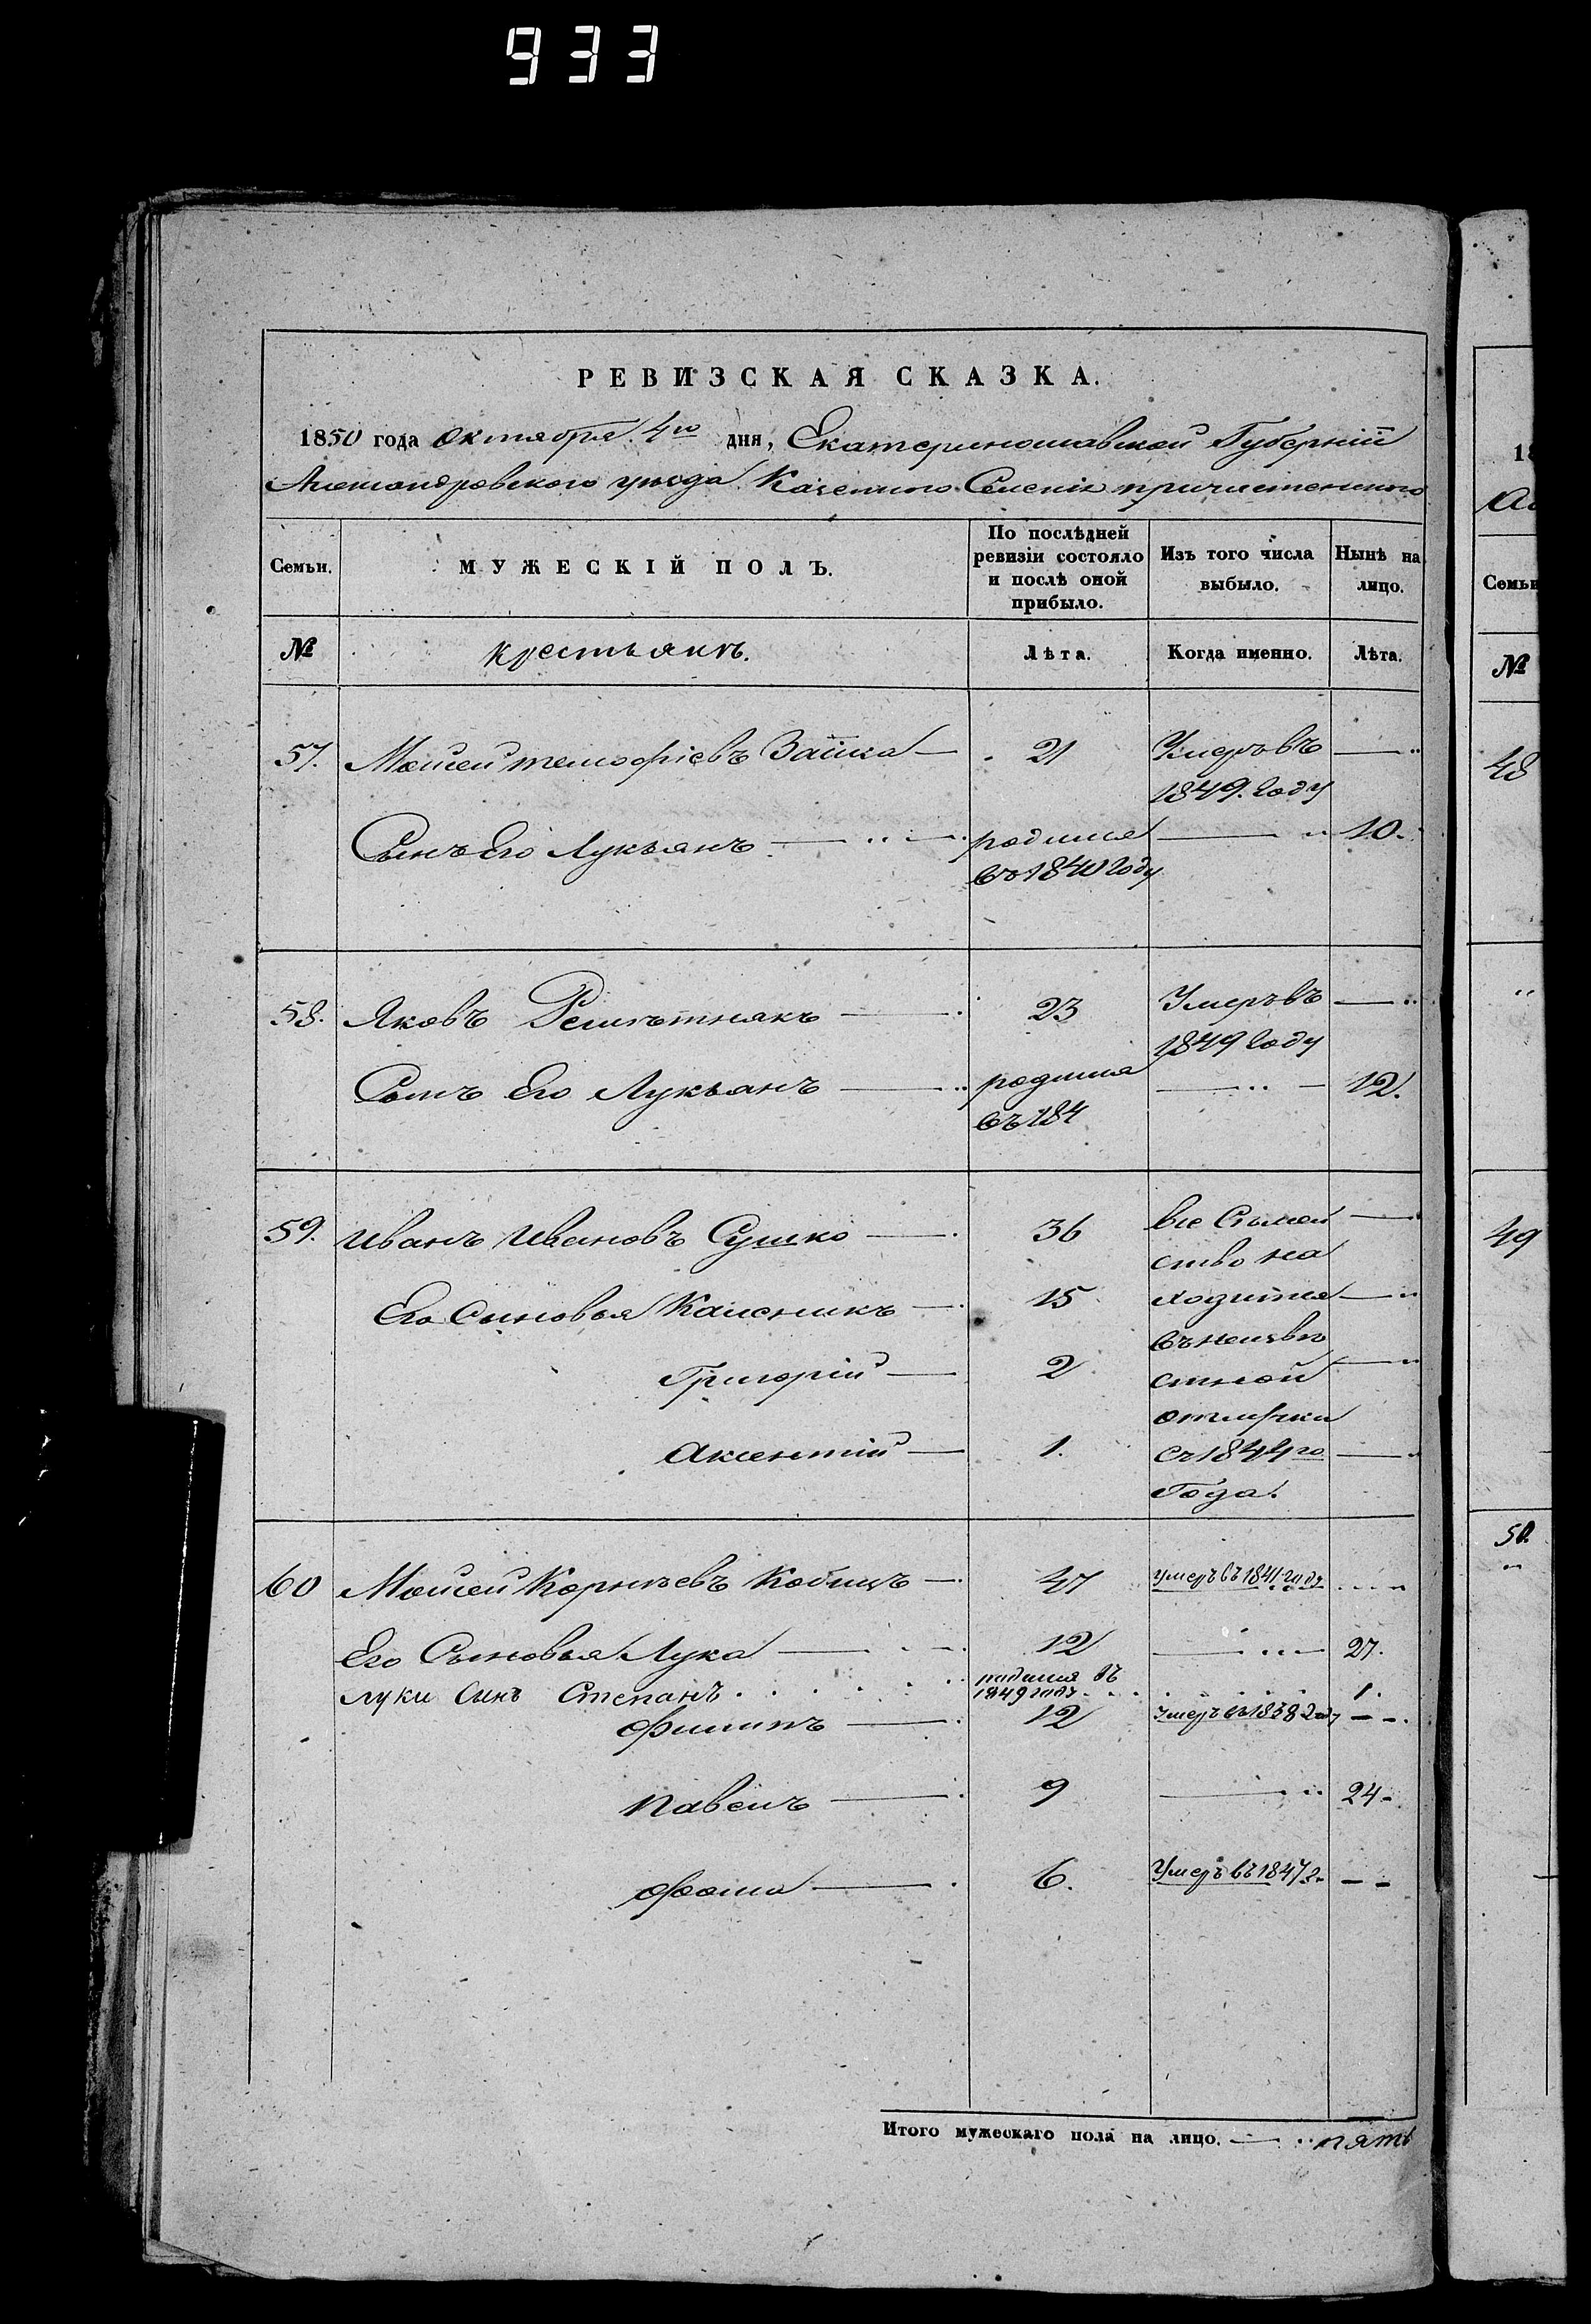 933
РЕВИЗСКАЯ СКАЗКА.
1850 года Октября 4го дня, Екатеринославской Губерніи
Александровского уезда Казенного Селенія пречистенского
Семьи. МУЖЕСКІЙ ПОЛЪ. По послѣдней ревизіи состояло и послѣ оной прибыло. Изъ того числа выбыло. Нынѣ на лицо.
№ крестьянъ. Лѣта. Когда именно. Лѣта.
57. Моисей Зайка 21 Умеръ въ
1849. году
Сынъ Его Лукъянъ родился 10.
въ 1840 году
58. Яковъ Решетнякъ 23 Умеръ въ
1849 году
Сынъ Его Лукьянъ родился 12.
въ 184
59. Иванъ Ивановъ Сушко 36 все Семей
ство на
Его Сыновья Каленикъ 15 ходится
въ неизве
Григорій 2 стной
отлучки
Аксентій 1. съ 1844го
Года.
60 Моисей Корнѣевъ 47 умеръ въ 1841 году
Его Сыновья Лука 12 27.
Луки Сынъ Степанъ родился въ 1849 году 1.
Филипъ 12 умеръ въ 1838 году
Павелъ 9 24
Фома 6. Умеръ въ 1847 г.
Итого мужескаго пола на лицо. пять
18
Семьи
№
48
49
50.